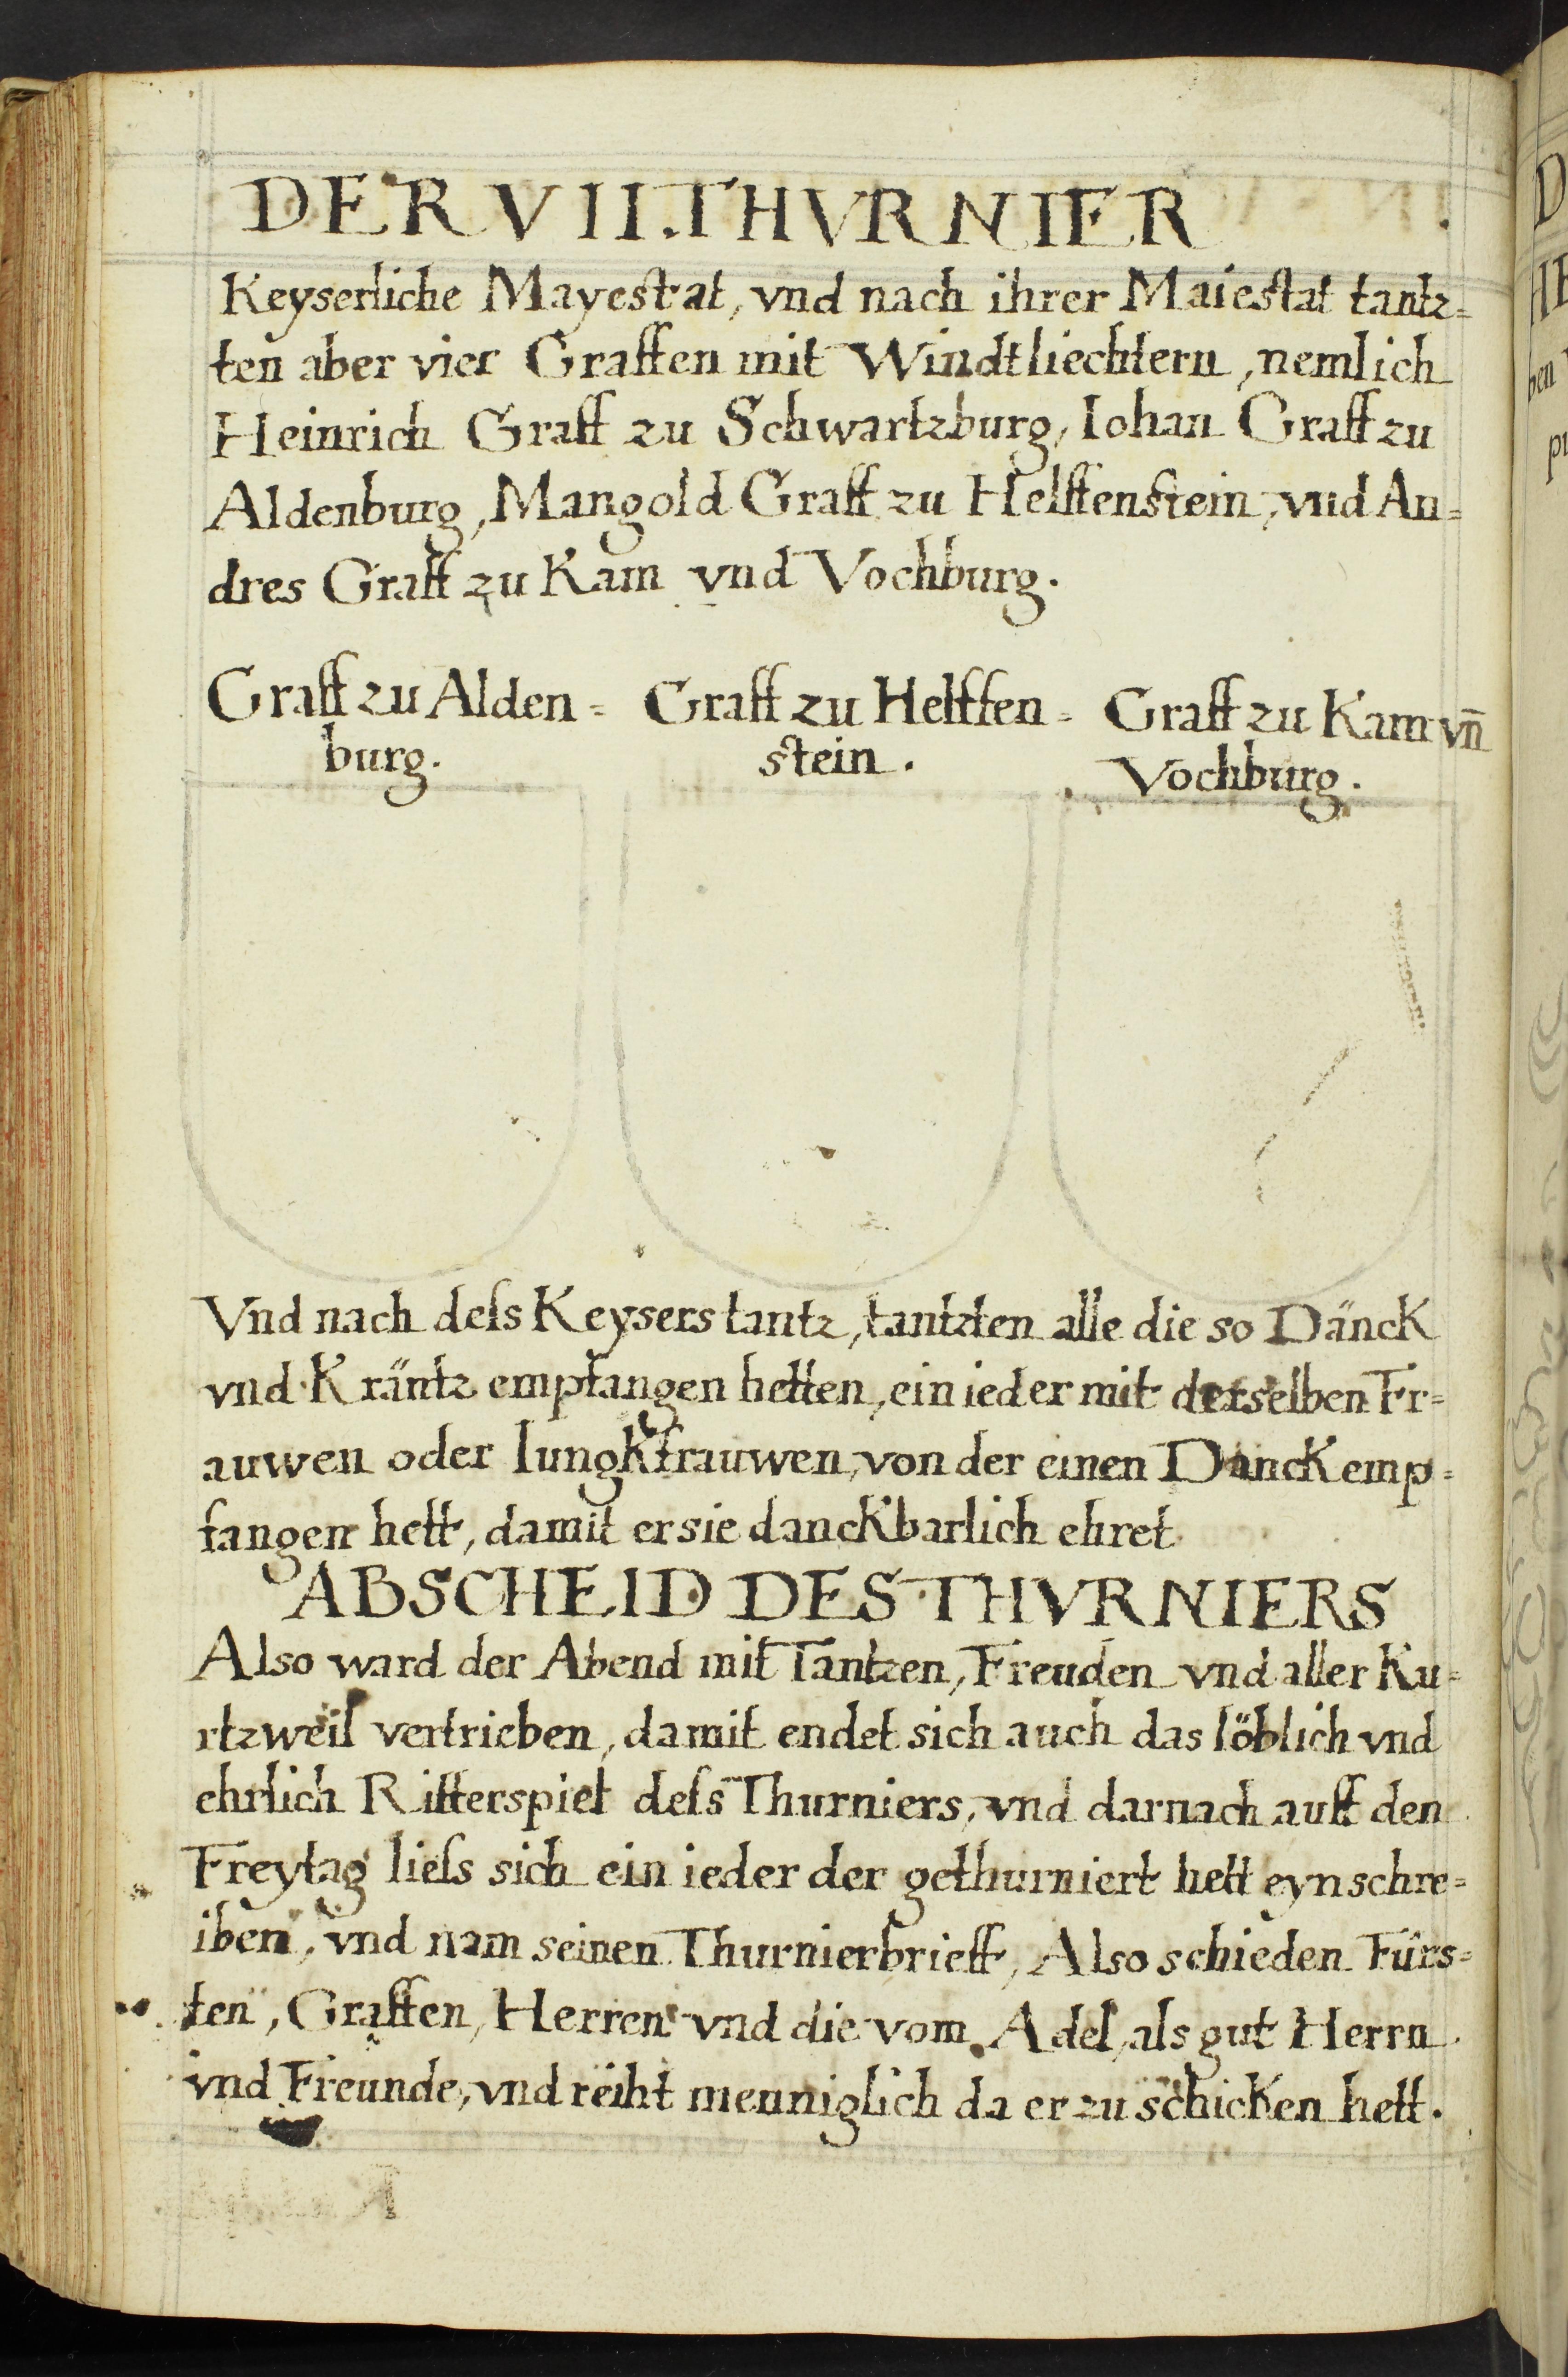 DER VII. THVRNIER
Keyserliche Mayestrat, vnd nach ihrer Maiestat tantz=
ten aber vier Graffen mit Windtliechtern, nemlich
Heinrich Graff zu Schwartzburg, Iohan Graff zu
Aldenburg, Mangold Graff zu Helffenstein, vnd An=
dres Graff zu Kam vnd Vochburg.
Graff zu Alden=
burg.
Graff zu Helffen=
stein.
Graff zu Kam vn̄
Vochburg.
Vnd nach deſs Keysers tantz, tantzten alle die so Dänck
vnd Kräntz empfangen hetten, ein ieder mit derselben Fr=
auwen oder Iungkfrauwen, von der einen Danck emp=
fangen hett, damit er sie danckbarlich ehret
ABSCHEID DES THVRNIERS
Also ward der Abend mit Tantzen, Freuden vnd aller Ku=
rtzweil vertrieben, damit endet sich auch das löblich vnd
ehrlich Ritterspiel deſs Thurniers, vnd darnach auff den
Freytag lieſs sich ein ieder der gethurniert hett eynschre=
iben, vnd nam seinen Thurnierbrieff, Also schieden Fürs=
ten, Graffen, Herren vnd die vom Adel, als gut Herrn
vnd Freunde, vnd reiht menniglich da er zu schicken hett.